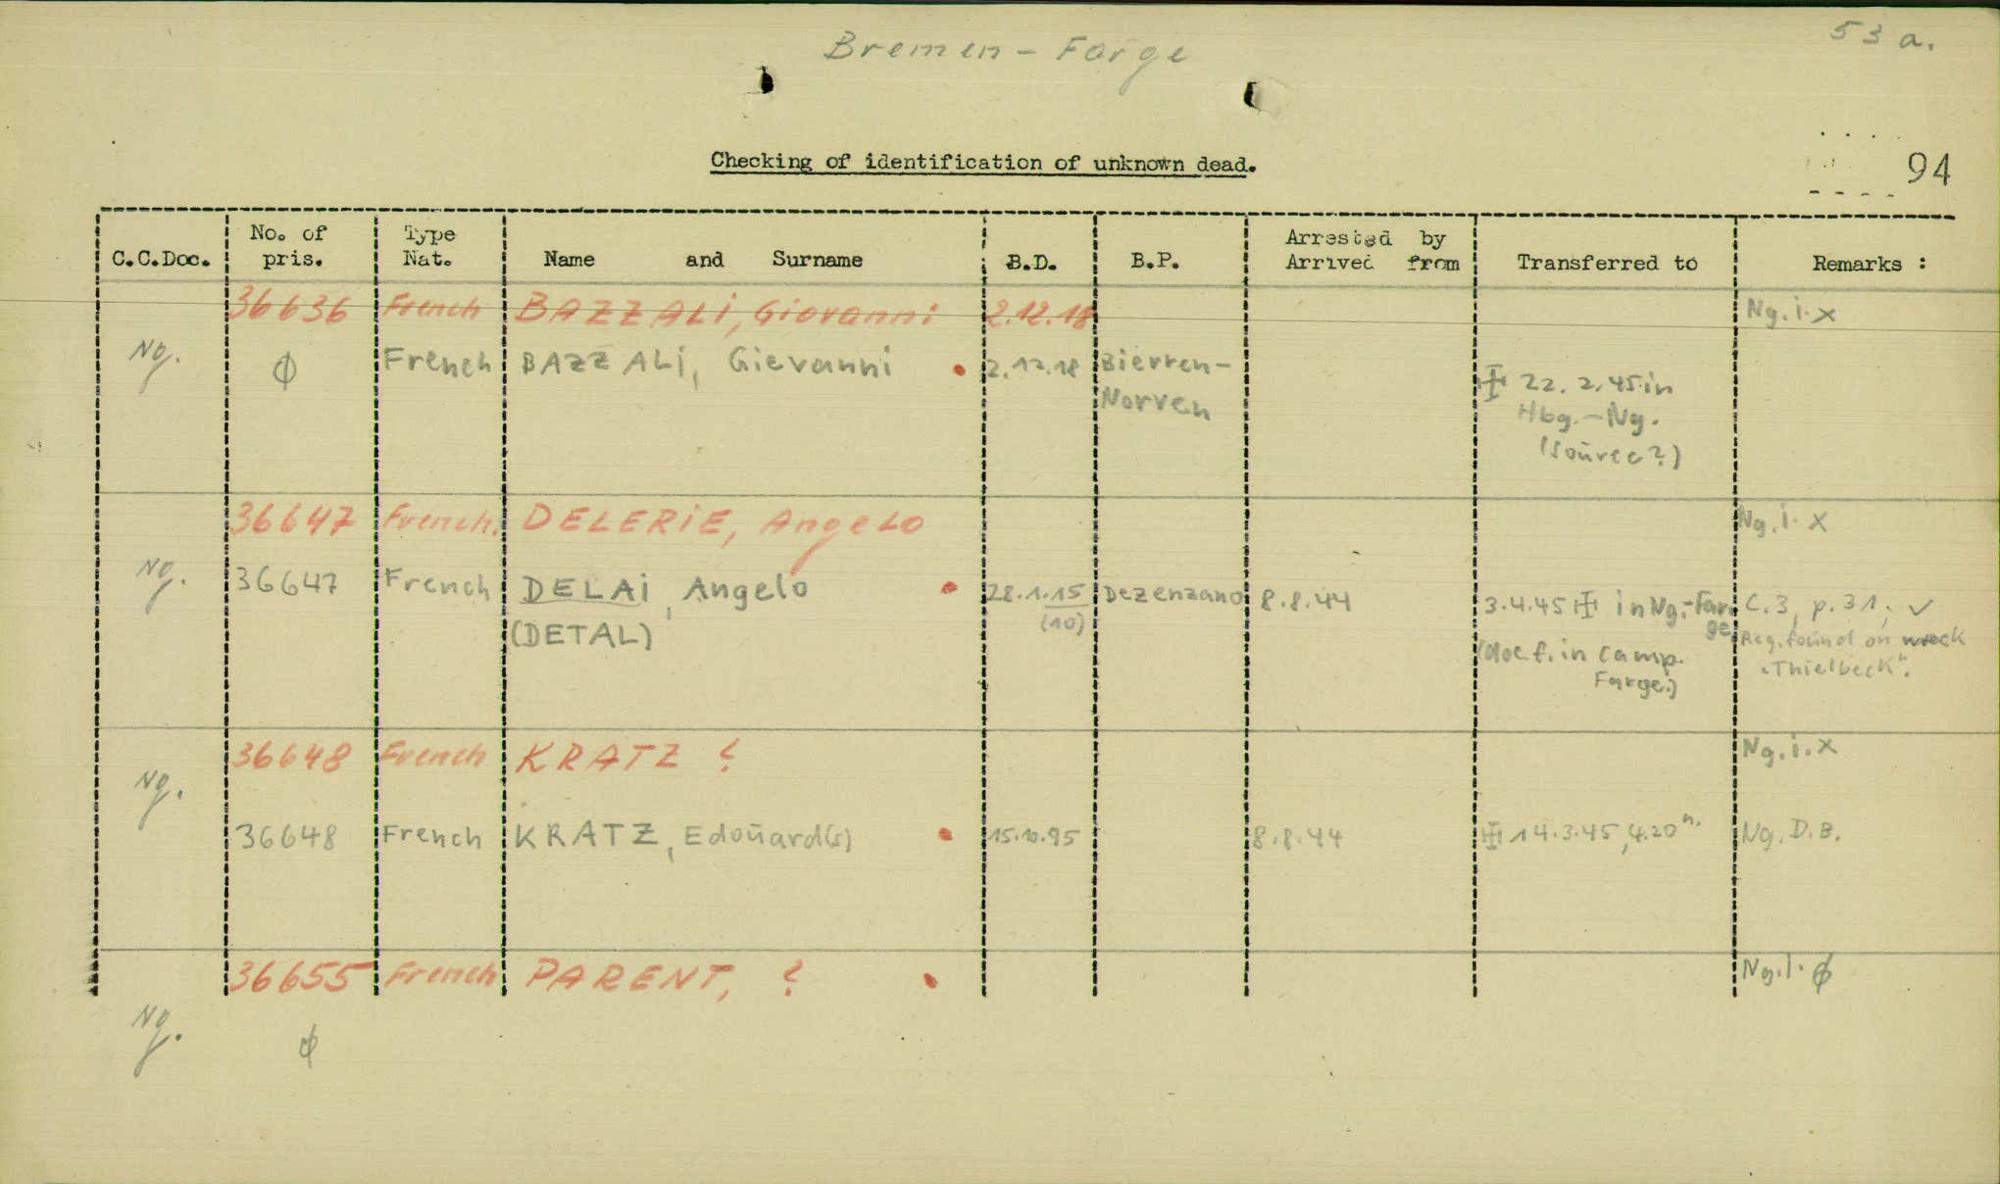 53 a.
Bremen - Farge
Checking of identification of unknown dead.
94
C.C.Doc. No. of pris. Type Nat. Name and Surname B.D. B.P. Arrested by Arrived from Transferred to Remarks :
36636 French BAZZALi, Giovanni 2.12.18 Ng. i. x
Ng. ϕ French BAZZALi, Gievanni 2.12.18 Bierren-
Norven
✠ 22. 2. 45 in
Hbg. - Ng.
(Source?)
36647 French. DELERiE, Angelo Ng. i. x
Ng. 36647 French DELAi, Angelo 28.1.15 Dezenzano 8.8.44 3.4.45 ✠ in Ng.-Far- C. 3, p. 31, ✓
(DETAL) (10) ge Reg. found on wreck
(doc f. in camp. „Thielbeck".
Farge.)
36648 French KRATZ ? Ng. i. x
Ng. 36648 French KRATZ, Edoūard(s) 15.10.95 8.8.44 ✠ 14.3.45, 4.20 h. Ng. D.B.
36655 French PARENT, ? Ng. i. ϕ
Ng. ϕ